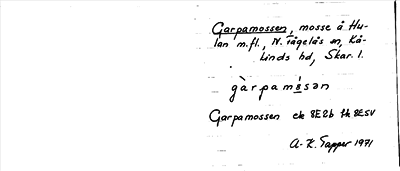 Garpamossen, mosse å Hu-
lan m.fl., N. Fågelås sn, Kå-
kinds hd, Skar. l.
gàrpamåsən
Garpamossen ek 8E2b fk 8E5V
A.-K. Tapper 1971